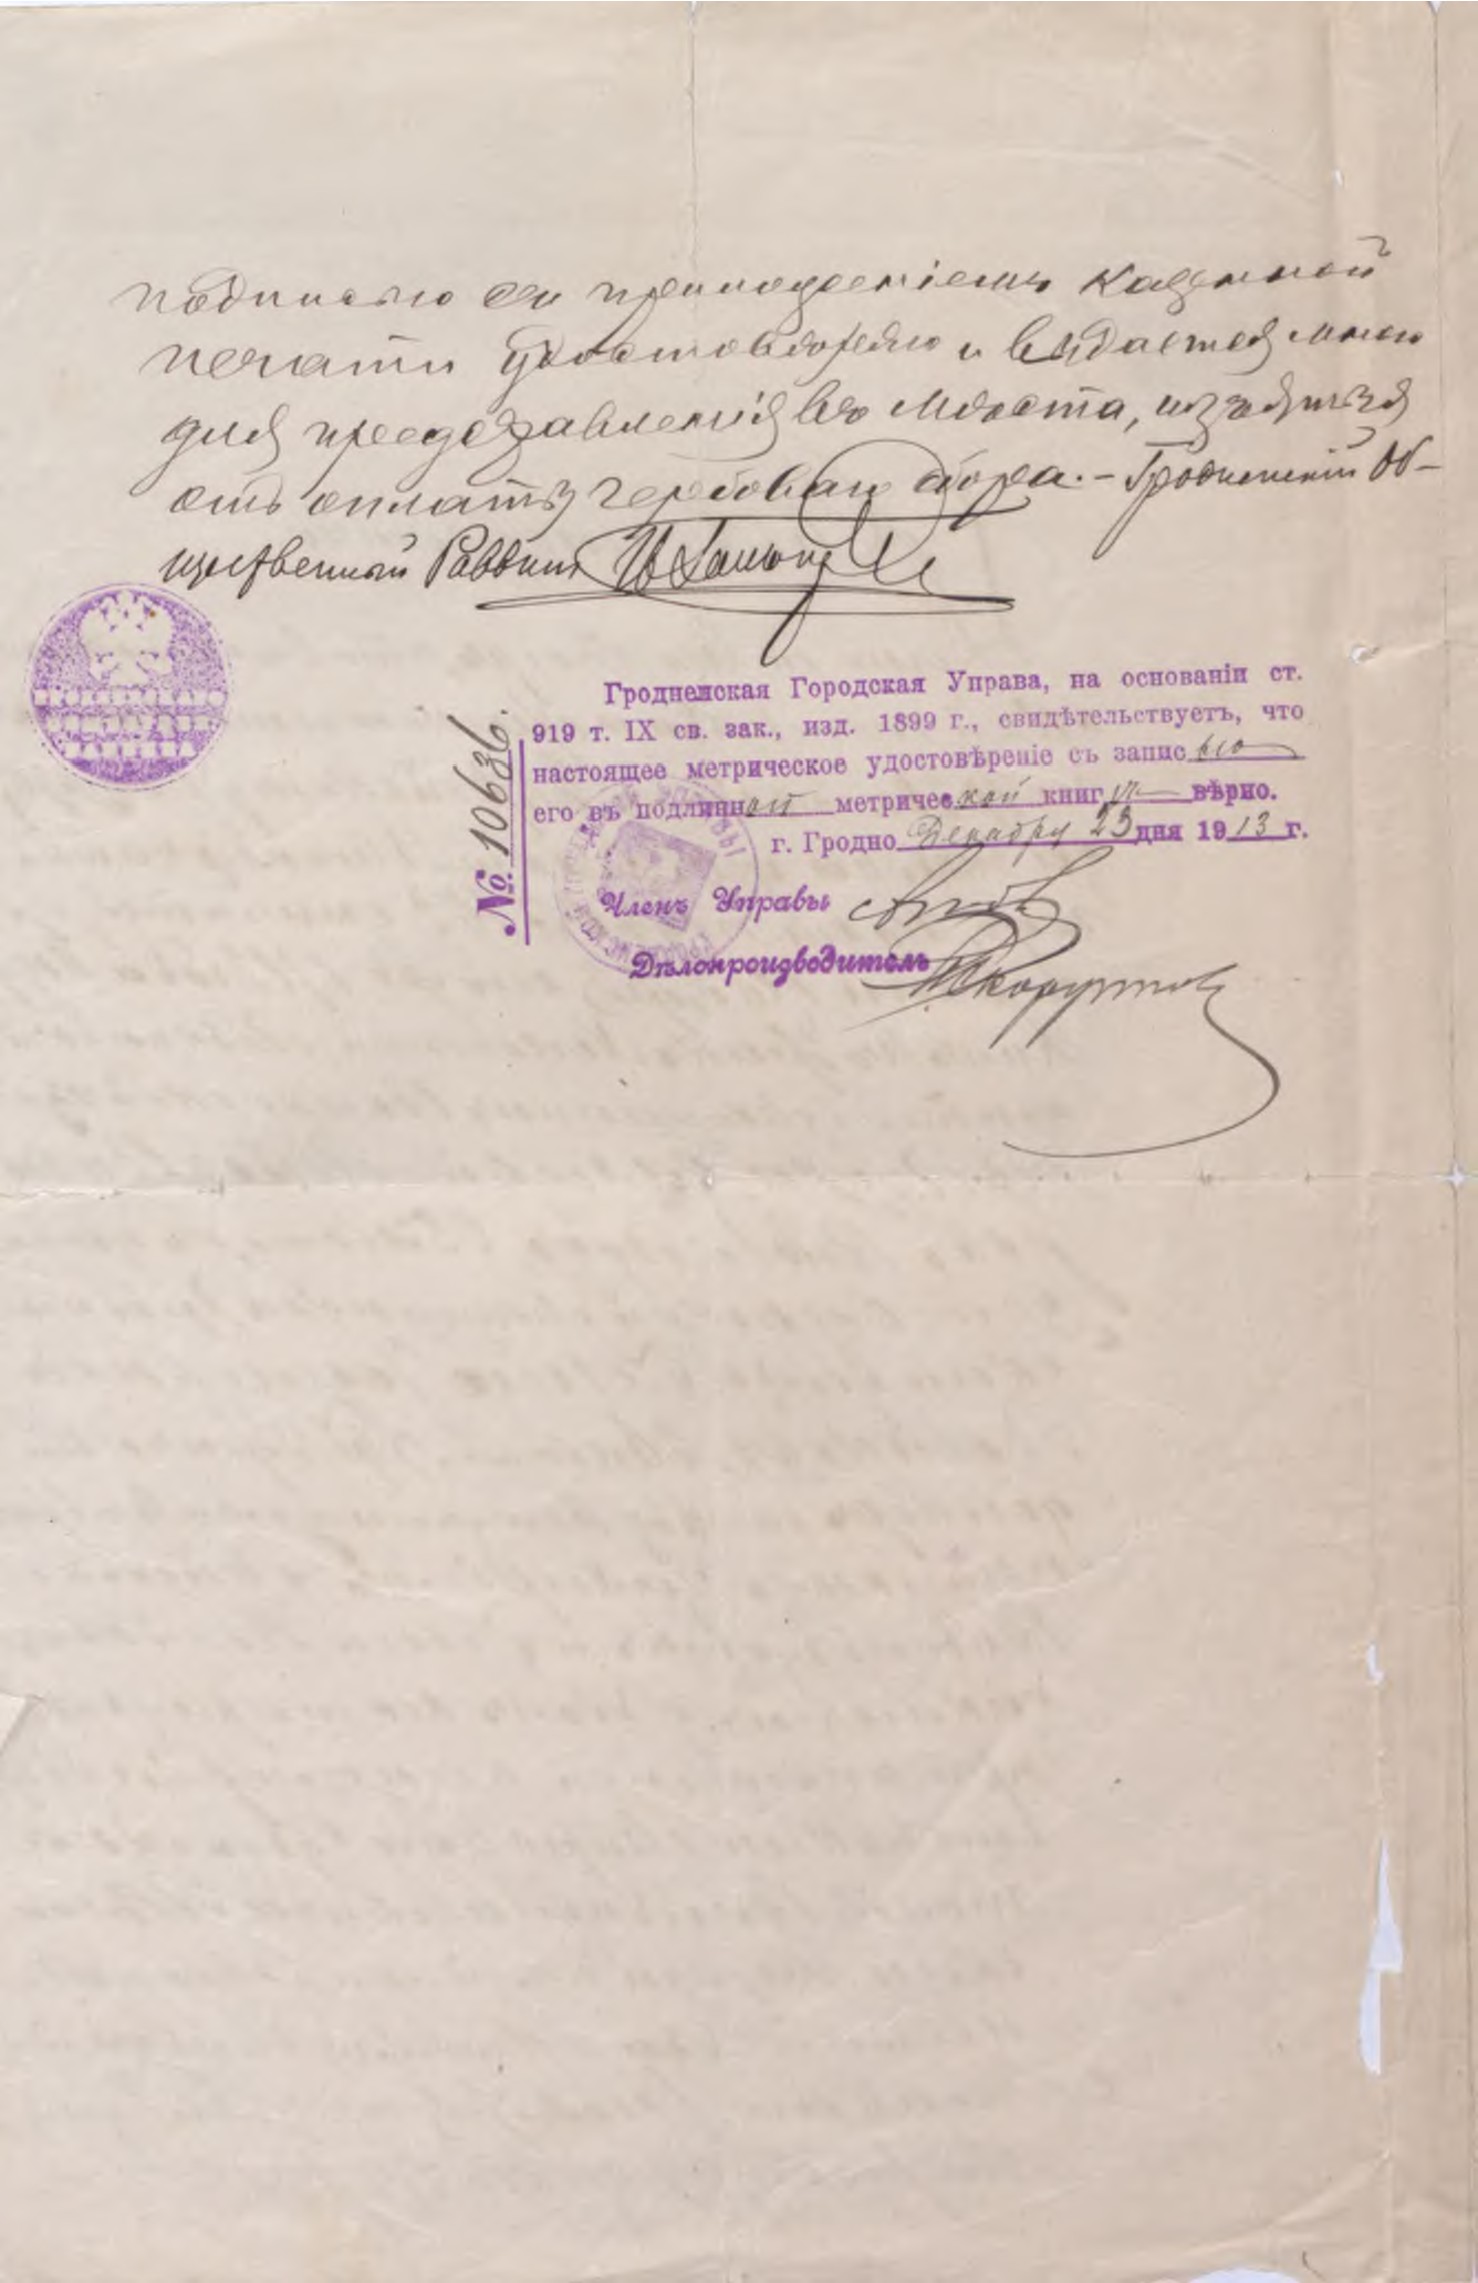 подписью съ приложеніемъ казенной
печати удостовѣряю и выдается мною
для представленія въ мѣста, изъятыя
отъ оплаты гербоваго сбора. – Гродненскій Об-
щественный Раввинъ
Гродненская Городская Управа, на основаніи ст.
919 т. IX св. зак., изд. 1899 г., свидѣтельствуетъ, что
настоящее метрическое удостовѣреніе съ записью
его въ подлинной метрической книгѣ вѣрно.
г. Гродно Декабря 23 дня 1913 г.
№ 10636.
Членъ Управы
Дѣлопроизводитель